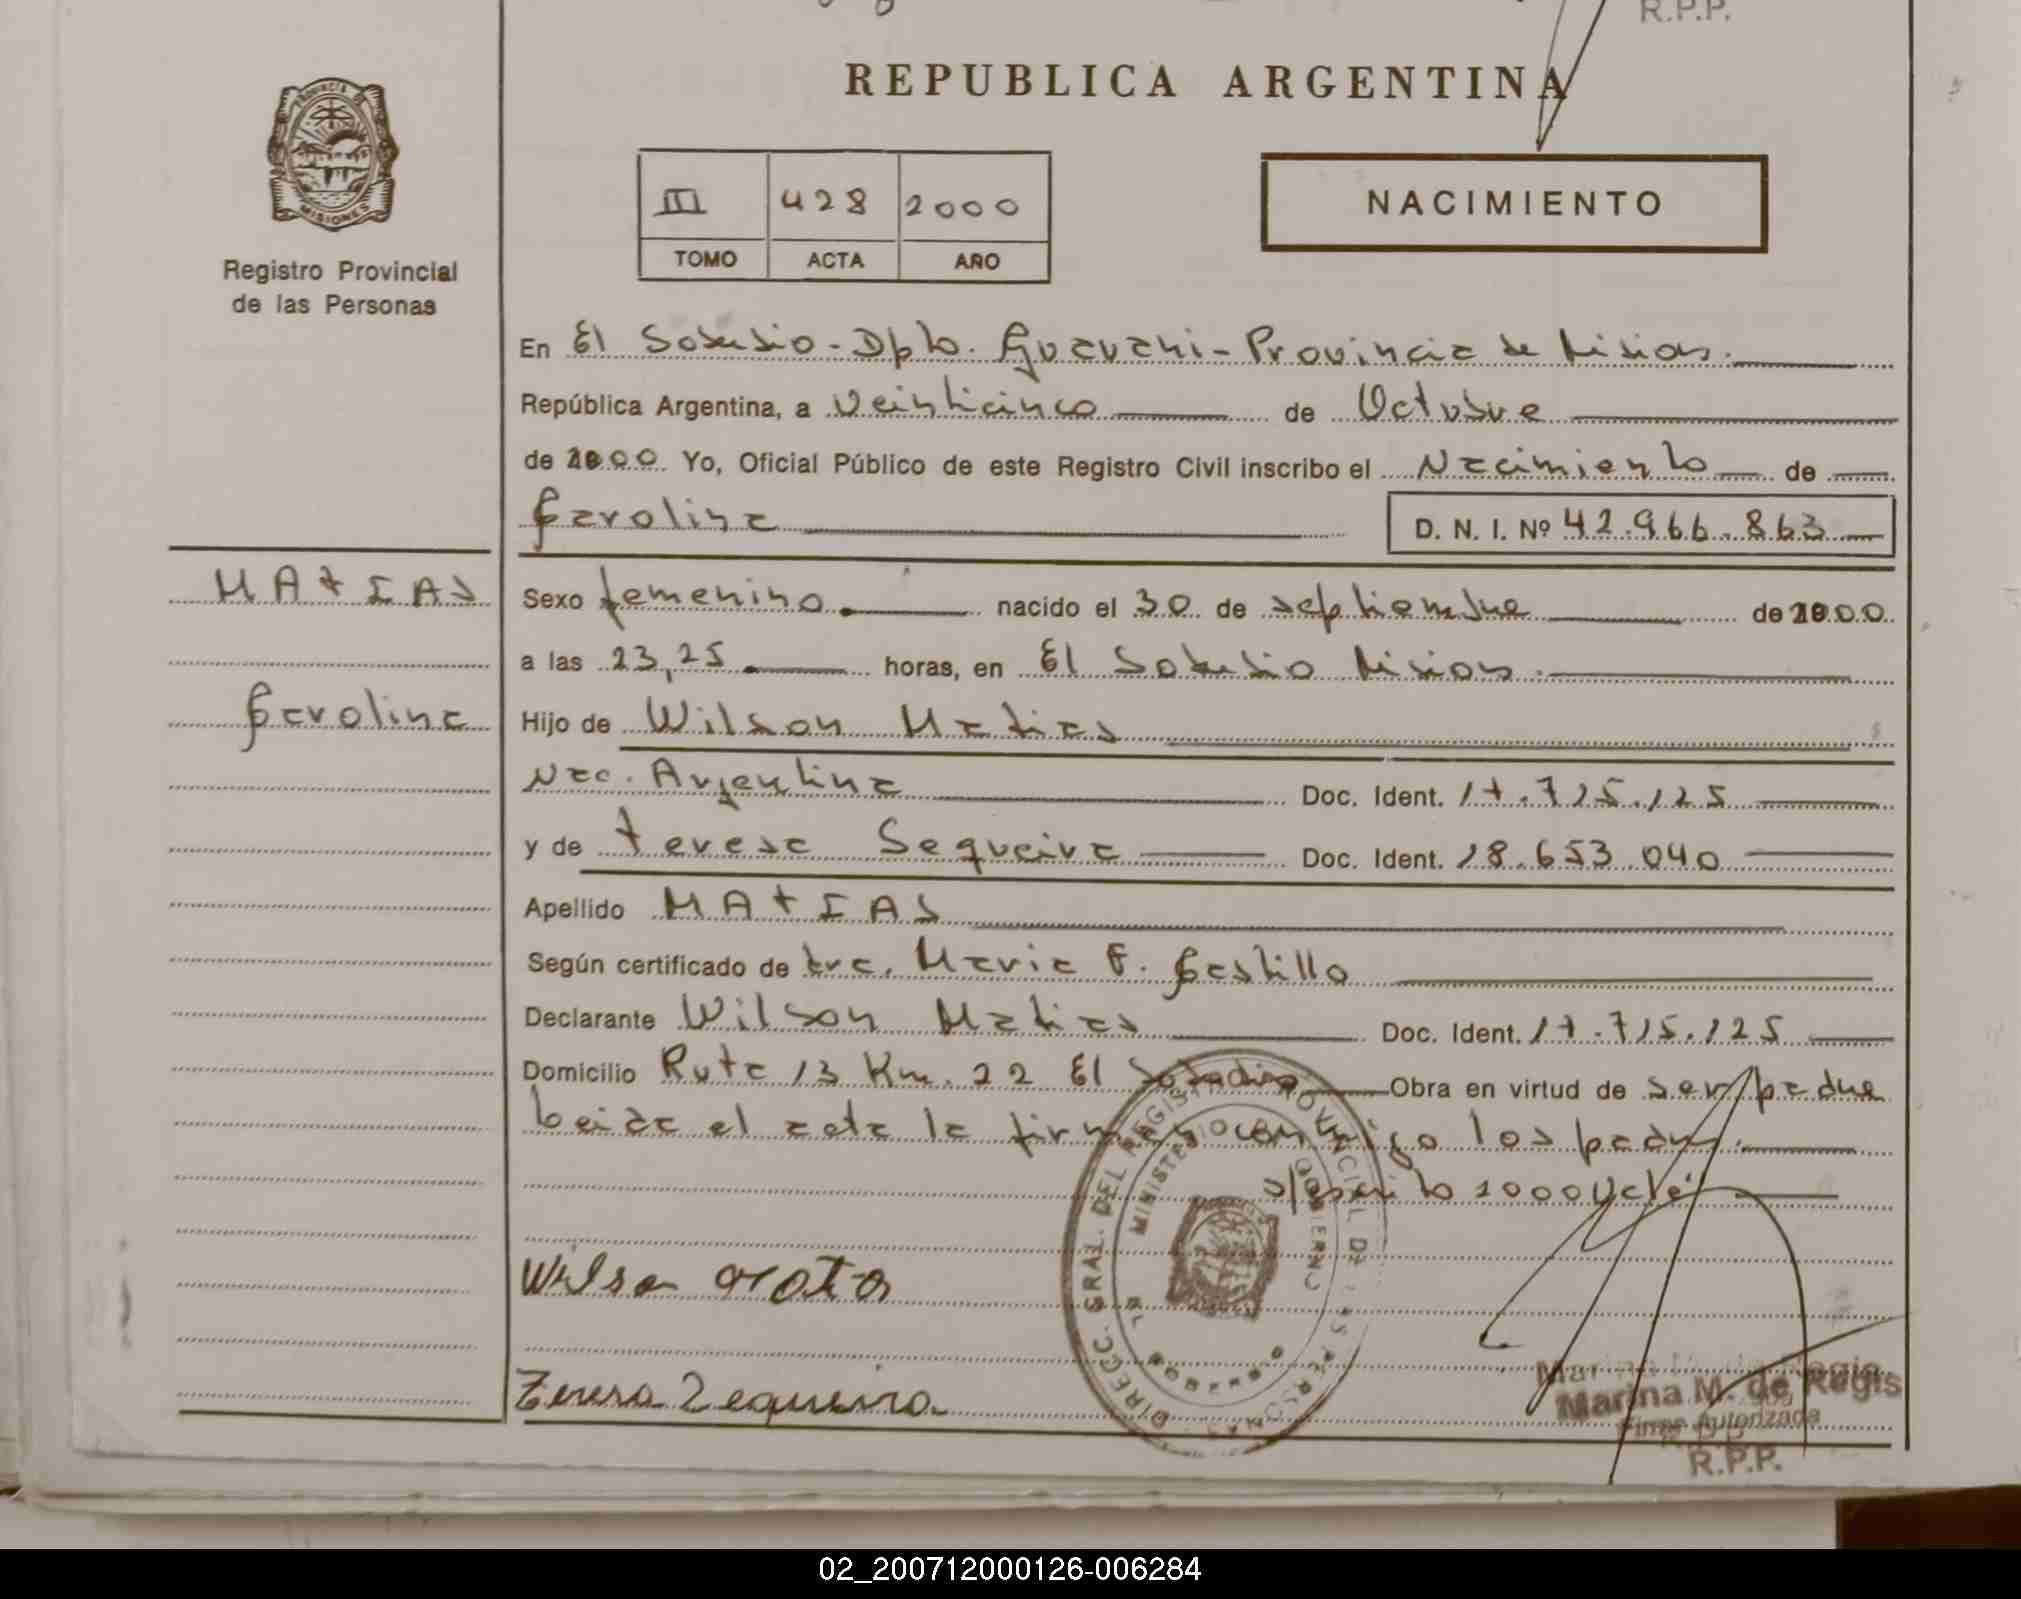 R.P.P.
REPUBLICA ARGENTINA
PROVINCIA DE
MISIONES
Registro Provincial
de las Personas
III 428 2000
TOMO ACTA AÑO
NACIMIENTO
En El Soberbio - Dpto. Guarani - Provincia de Misiones.
República Argentina, a Veinticinco de Octubre
de 2000 Yo, Oficial Público de este Registro Civil inscribo el Nacimiento de
Carolina
D. N. I. Nº 42.966.863
MATIAS
Sexo femenino nacido el 30 de septiembre de 2000
a las 23,25 horas, en El Soberbio Misiones.
Carolina
Hijo de Wilson Matias
Nac. Argentina Doc. Ident. 17.715.125
y de Teresa Sequeira Doc. Ident. 18.653.040
Apellido MATIAS
Según certificado de tra. Maria F. Castillo
Declarante Wilson Matias Doc. Ident. 17.715.125
Domicilio Ruta 13 Km. 22 El Soberbio Obra en virtud de ser padre
Leida el acta la firman conmigo los padres.
2000 Vale
DIRECC. GRAL. DEL REGISTRO PROVINCIAL DE LAS PERSONAS
MINISTERIO GOBIERNO
Teresa Sequeira
Marina M. de Regis
Firma Autorizada
R.P.P.
02_200712000126-006284